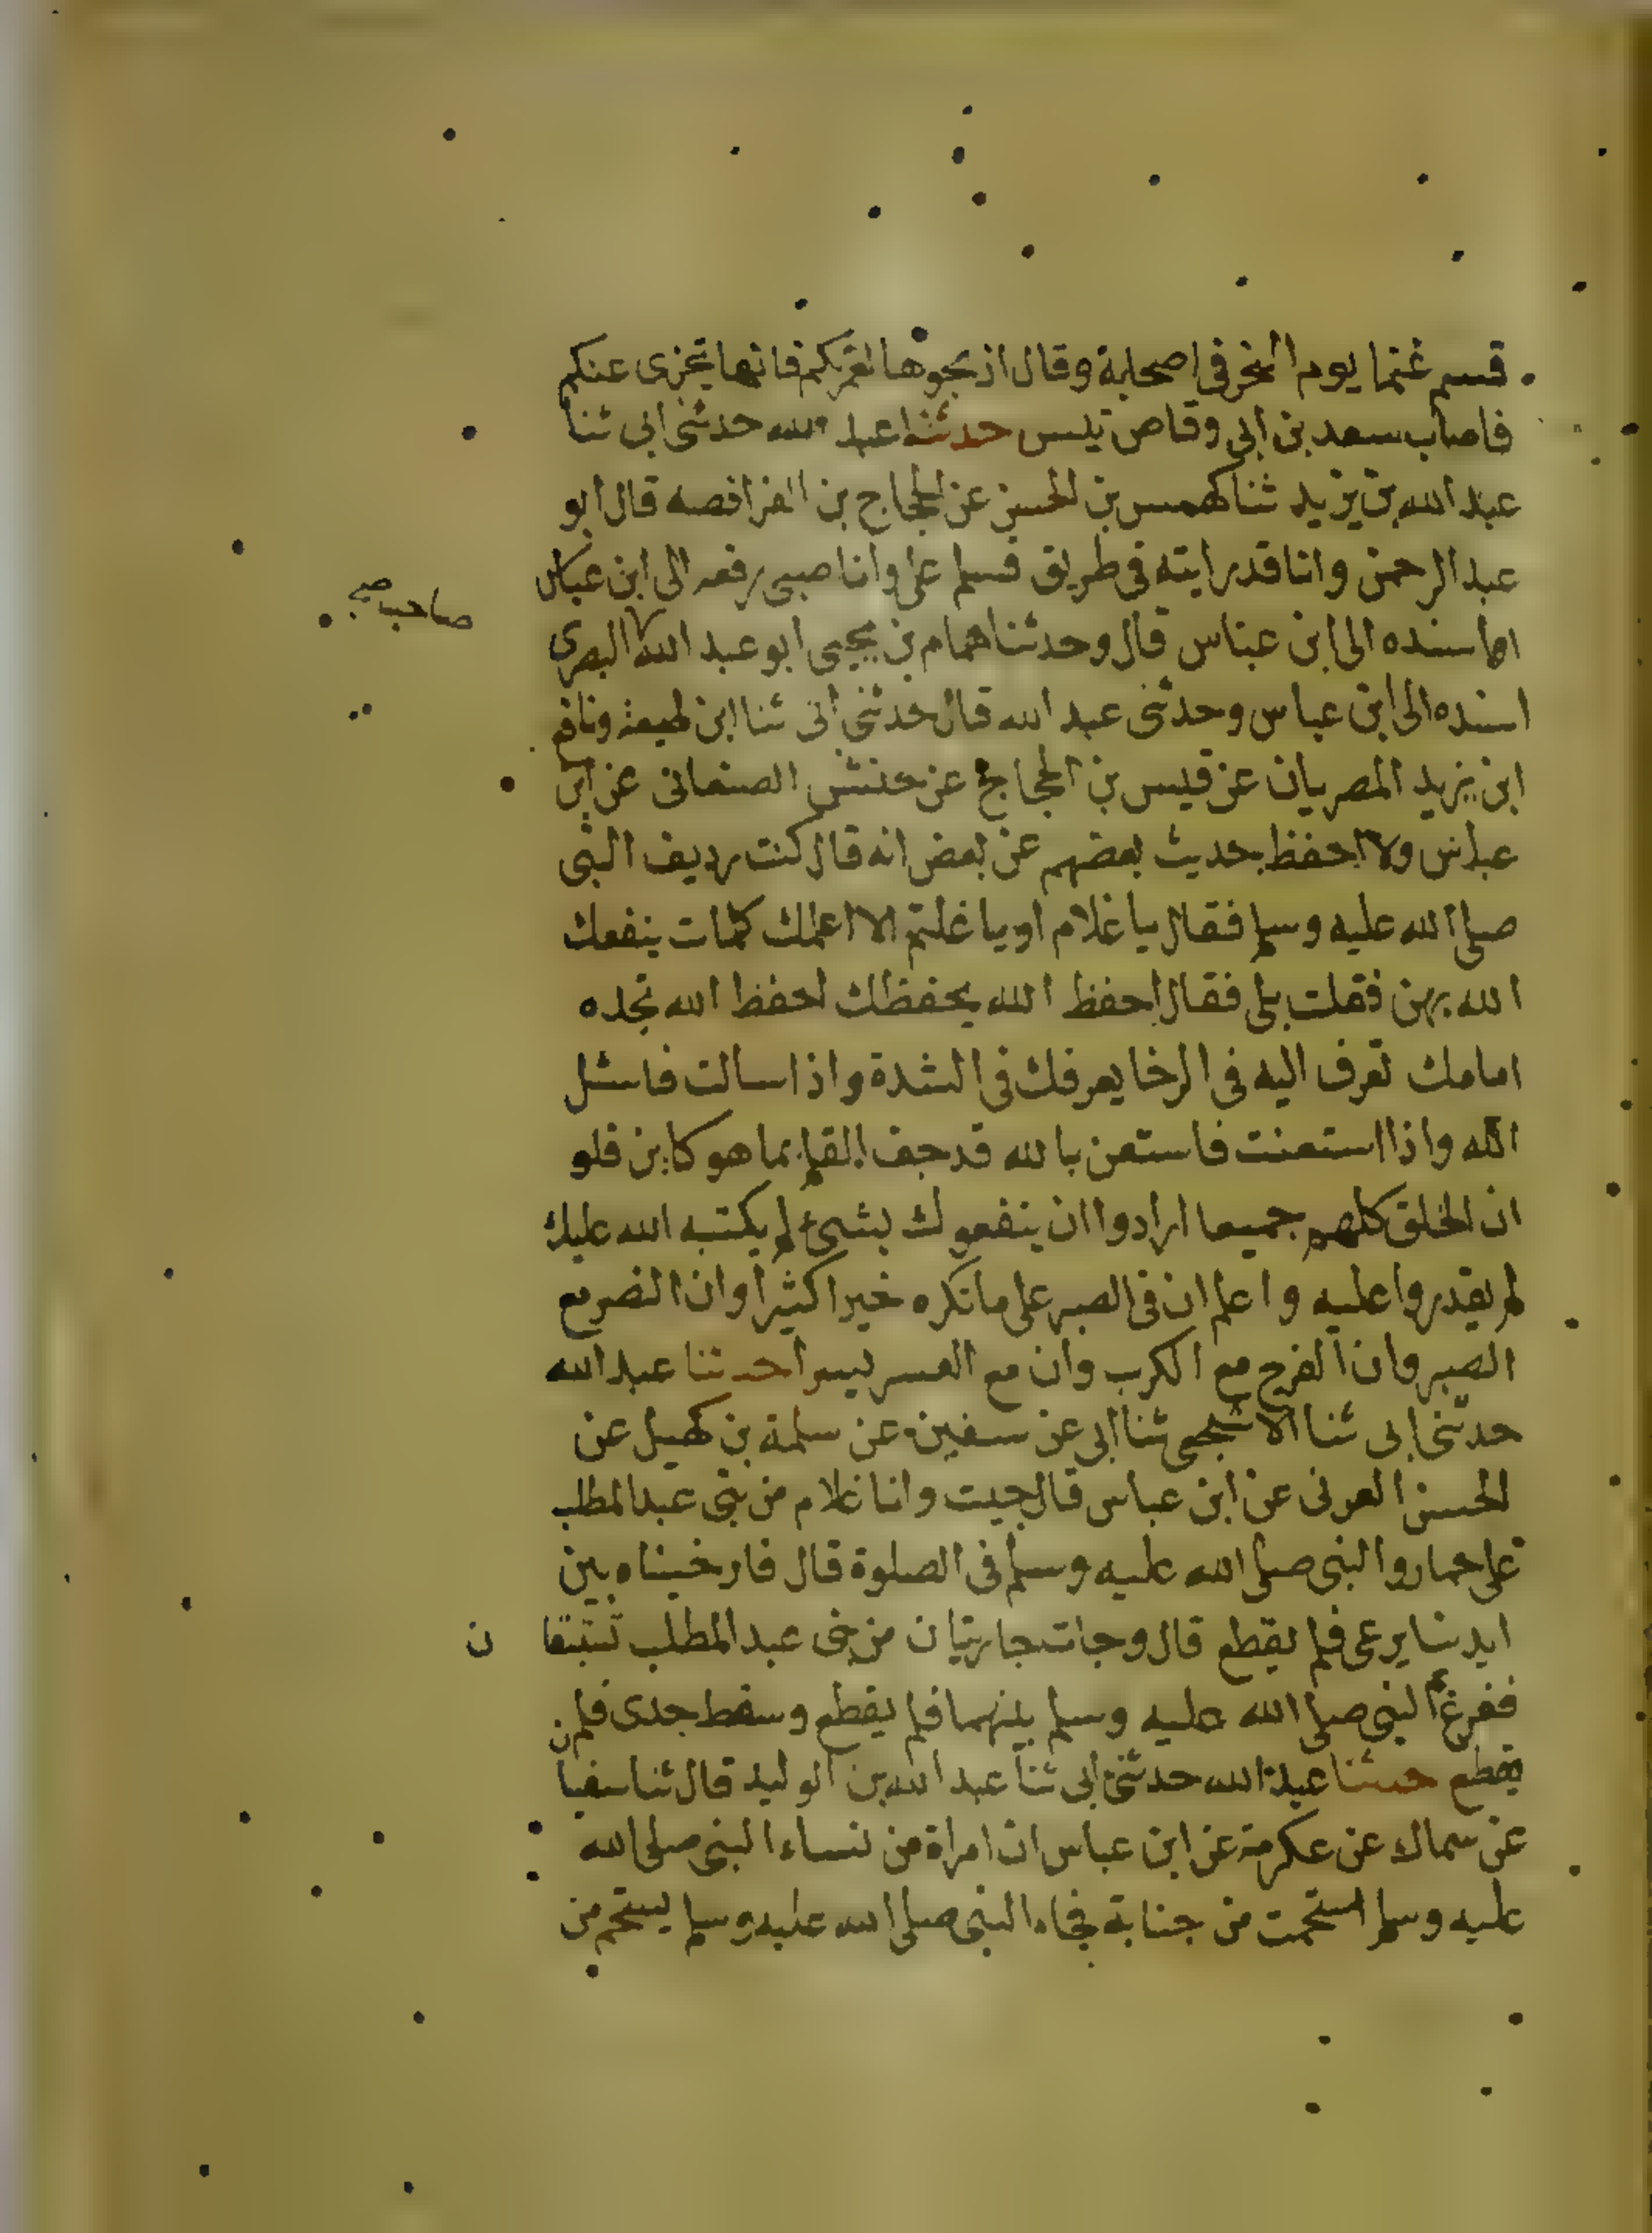 قسم غنما يوم النحر في اصحابه وقال اذبحوها لعمرتكم فانها تجزى عنكم
فاصاب سعد بن ابى وقاص تيس حدثنا عبد الله حدثنى ابى ثنا
عبد الله بن يزيد ثنا كهمس بن الحسن عن الحجاج بن الفرافصه قال ابو
عبد الرحمن وانا قد رايته فى طريق فسلم على وانا صبى رفعه الى ابن عباس
اما سنده الى ابن عباس قال وحدثنا همام بن يحيى ابو عبد الله البصرى
صاحب صح
اسنده الى ابن عباس وحدثنى عبد الله قال حدثنى ابى ثنا ابن لهيعة ونافع
ابن يزيد المصريان عن قيس بن الحجاج عن حنش الصنعانى عن ابن
عباس ولا احفظ حديث بعضهم عن بعض انه قال كنت رديف النبى
صلى الله عليه وسلم فقال يا غلام او يا غليم الا اعلمك كلمات ينفعك
الله بهن فقلت بلى فقال احفظ الله يحفظك احفظ الله تجده
امامك تعرف اليه فى الرخا يعرفك فى الشدة واذا سالت فاسئل
الله واذا استعنت فاستعن بالله قد جف القلم بما هو كاين فلو
ان الخلق كلهم جميعا ارادوا ان ينفعوك بشئ لم يكتبه الله عليك
لم يقدروا عليه واعلم ان فى الصبر على ما تكره خيرا كثيرا وان النصر مع
الصبر وان الفرج مع الكرب وان مع العسر يسرا حدثنا عبد الله
حدثنى ابى ثنا الاشجعى ثنا ابى عن سفين عن سلمة بن كهيل عن
الحسن العرنى عن ابن عباس قال جيت وانا غلام من بنى عبد المطلب
على حمار والنبى صلى الله عليه وسلم فى الصلوة قال فارخيناه بين
ايدينا يرعى فلم يقطع قال وجات جاريتان من بنى عبد المطلب تستبقا ن
ففرع النبى صلى الله عليه وسلم بينهما فلم يقطع وسقط جدى فلم
يقطع حدثنا عبد الله حدثنى ابى ثنا عبد الله بن الوليد قال ثنا سفيان
عن سماك عن عكرمة عن ابن عباس ان امراة من نساء النبى صلى الله
عليه وسلم استحمت من جنابة فجاء النبى صلى الله عليه وسلم يستحم من